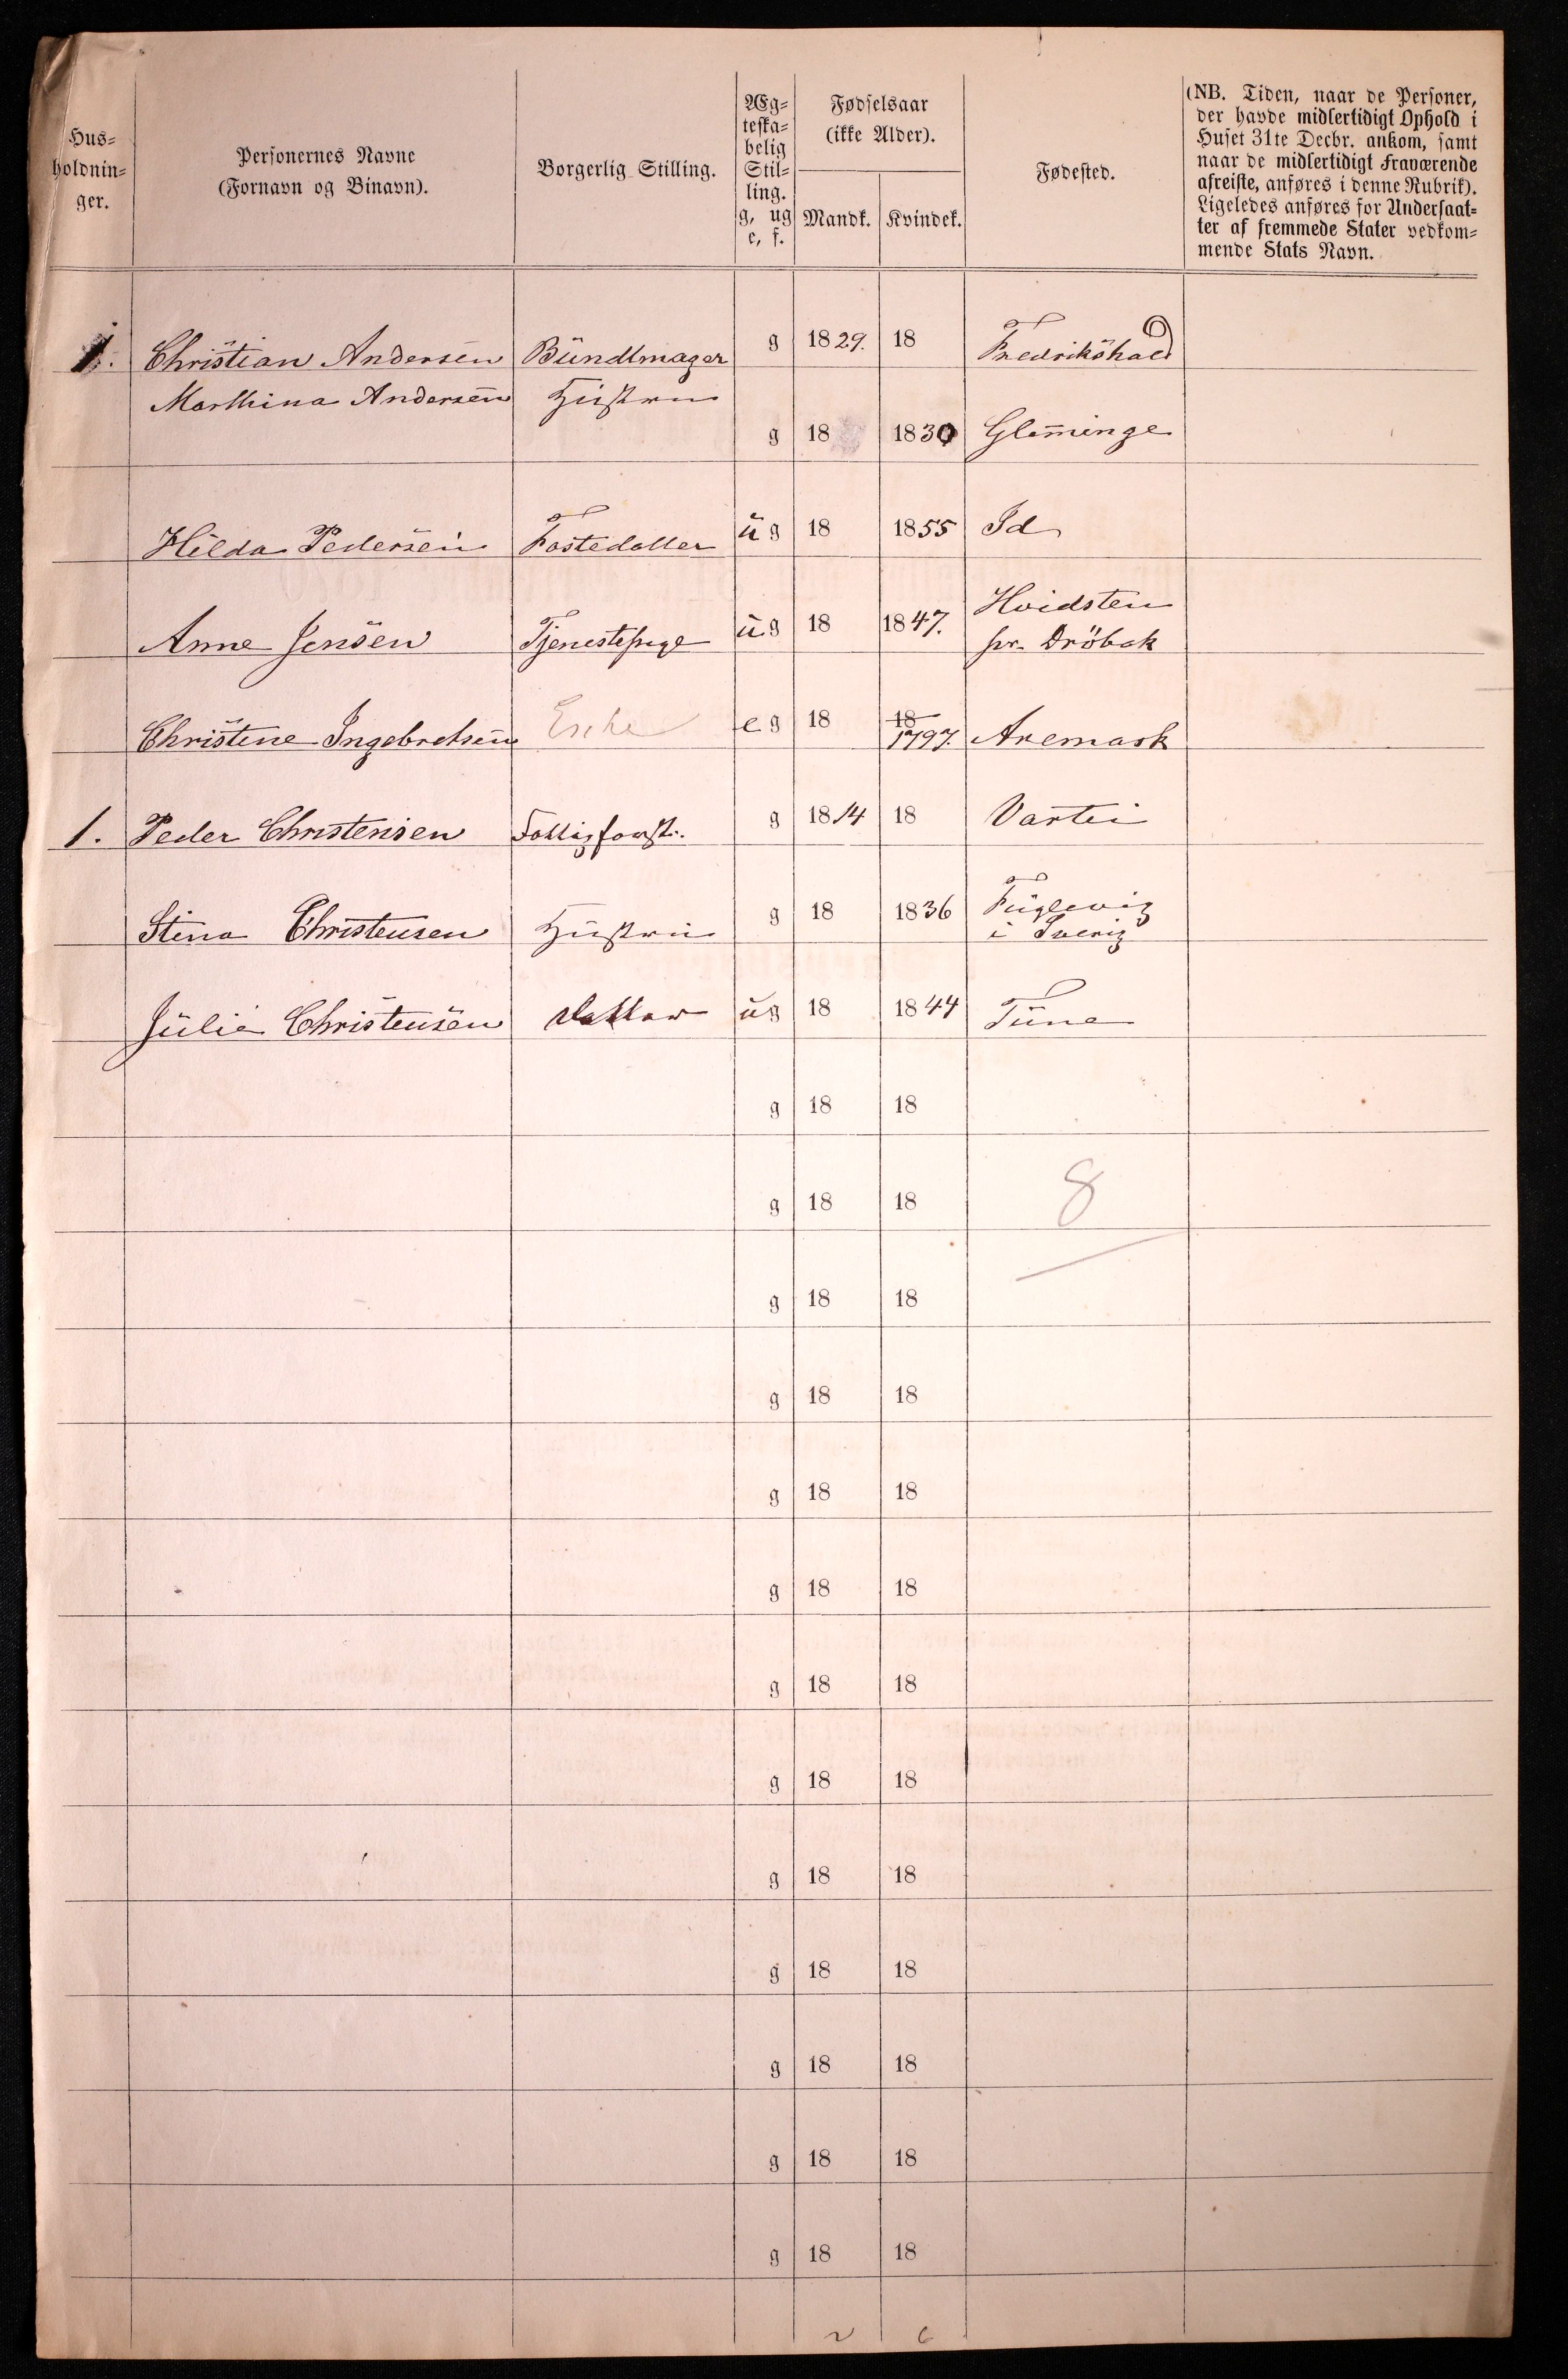 Hus-
holdnin-
ger.
Personernes Navne
(Fornavn og Binavn).
Borgerlig Stilling.
Æg-
teska-
belig
Stil-
ling.
g, ug
e, f.
Fødselsaar
(ikke Alder).
Mandk. Kvindek.
Fødested.
(NB. Tiden, naar de Personer,
der havde midlertidigt Ophold i
Huset 31te Decbr. ankom, samt
naar de midlertidigt Fraværende
afreiste, anføres i denne Rubrik).
Ligeledes anføres for Undersaat-
ter af fremmede Stater vedkom-
mende Stats Navn.
1. Christian Andersen Bundtmager g 1829. 18 Fredrikshald
Marthina Andersen Hustru g 18 1830 Glem̄inge
Hilda Pedersen Fostedatter ug 18 1855 Id
Anne Jensen Tjenestepige ug 18 1847. Hvidsten
pr. Dröbak
Christine Ingebretsen Enke eg 18 18
1797. Aremark
1. Peder Christensen g 1814 18 Vartei
Stina Christensen Hustru g 18 1836 Fuglevig
i Sverig
Julie Christensen Datter ug 18 1844 Tune
g 18 18
g 18 18 8
g 18 18
g 18 18
g 18 18
g 18 18
g 18 18
g 18 18
g 18 18
g 18 18
g 18 18
g 18 18
g 18 18
2 6